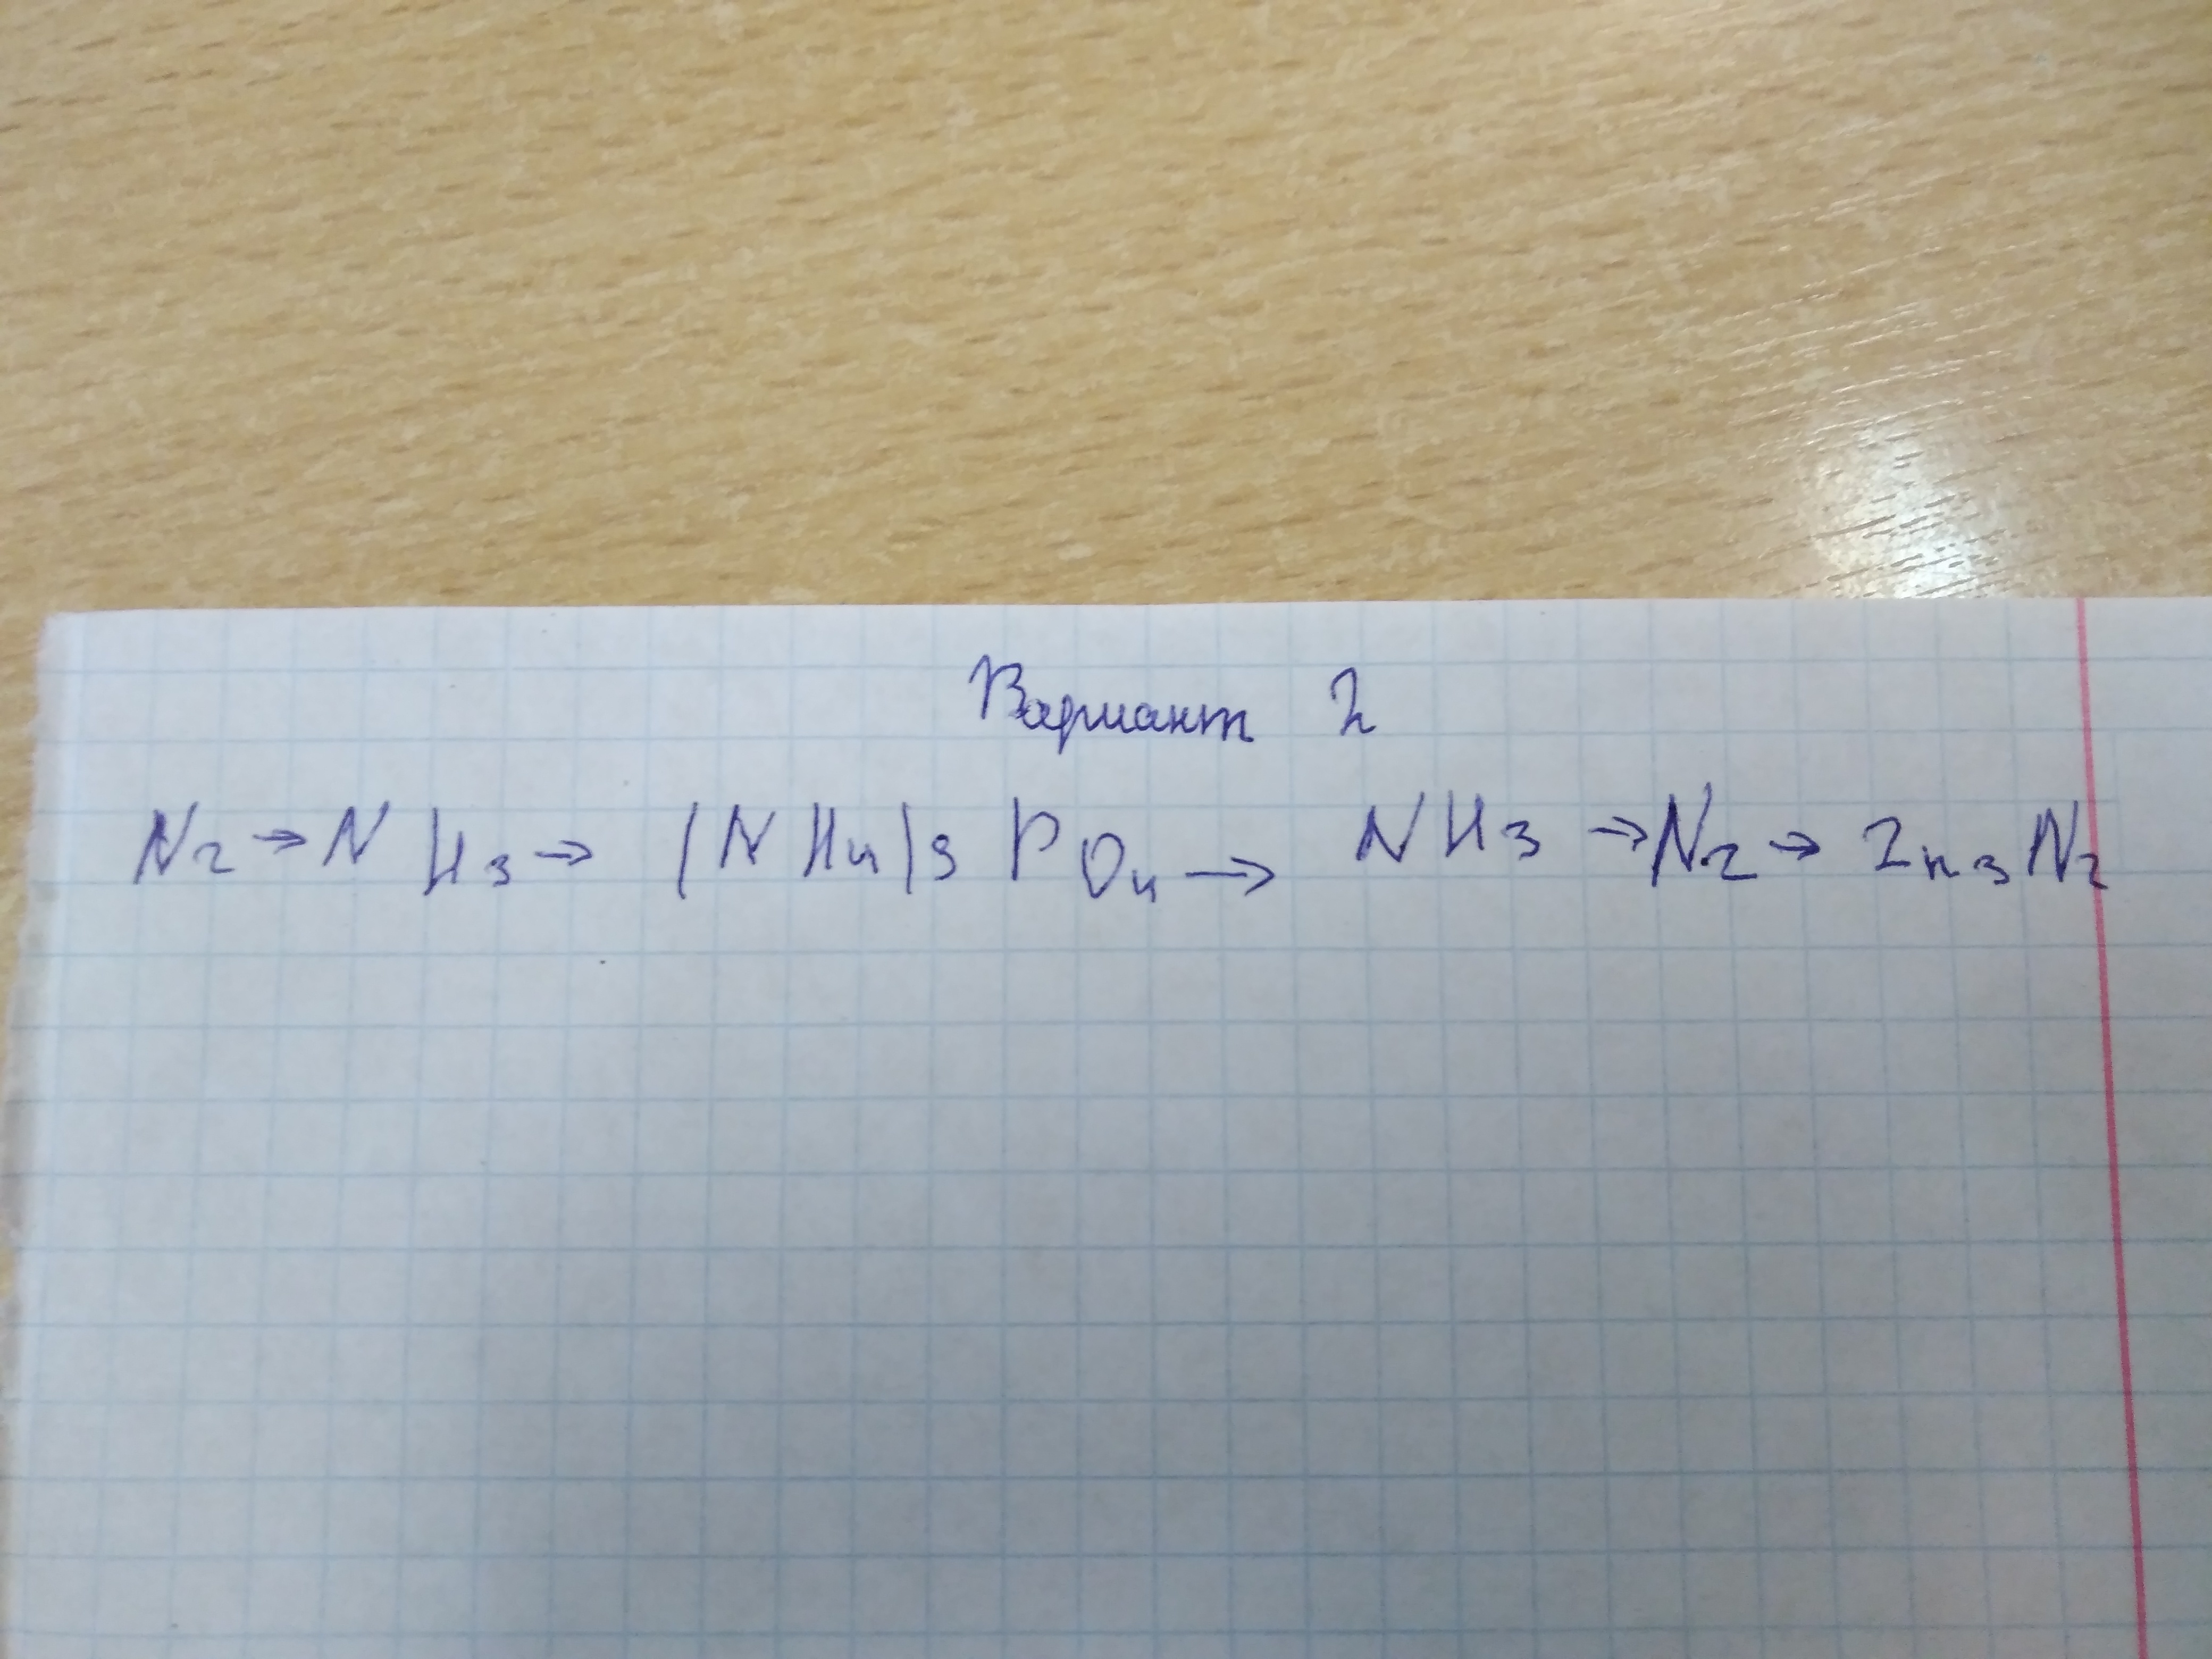 Вариант 2
N₂ → NH₃ → (NH₄)₃PO₄ → NH₃ → N₂ → Zn₃N₂